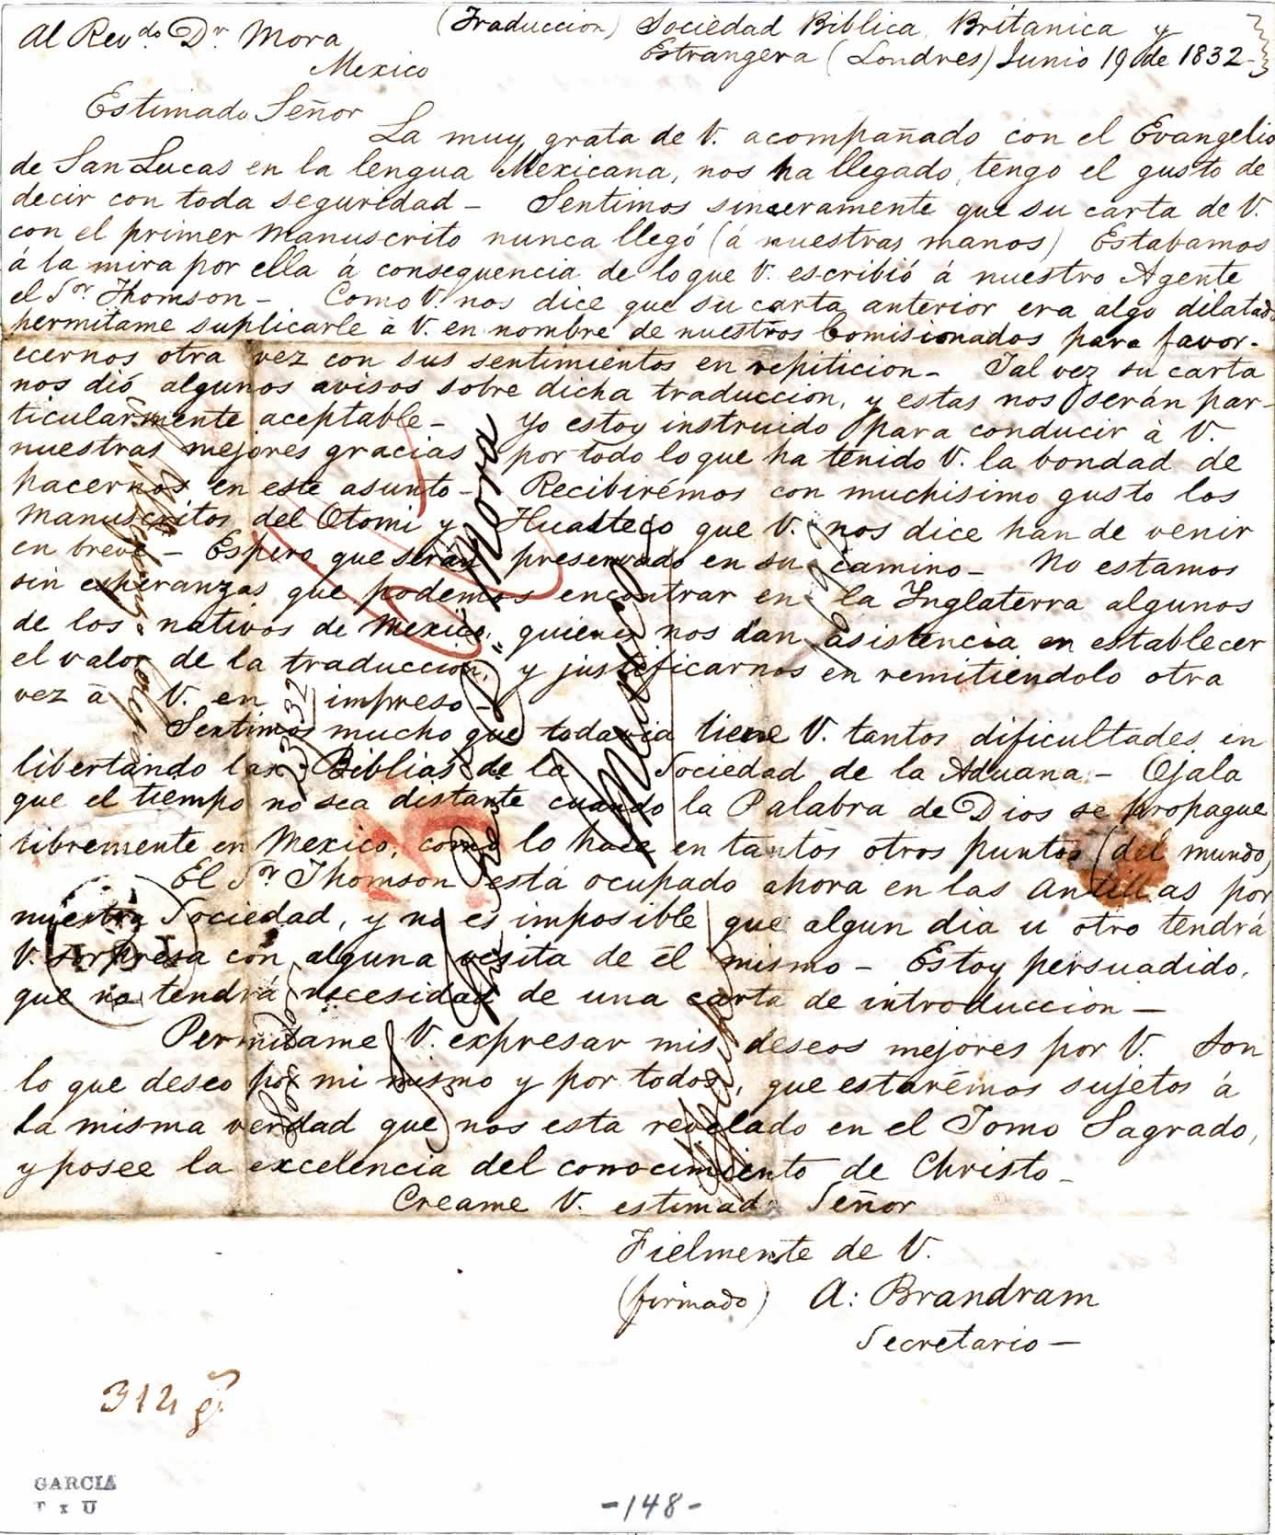 Al Rev.do Dr Mora
Mexico
(Traduccion) Sociedad Biblica Britanica y
Estrangera (Londres) Junio 19 de 1832-
Estimado Señor
La muy grata de V. acompañado con el Evangelio
de San Lucas en la lengua Mexicana, nos ha llegado, tengo el gusto de
decir con toda seguridad - Sentimos sinceramente que su carta de V.
con el primer manuscrito nunca llegó (á nuestras manos) Estabamos
á la mira por ella á consequencia de lo que V. escribió á nuestro Agente
el Sor Thomson - Como V. nos dice que su carta anterior era algo dilatada
permitame suplicarle à V. en nombre de nuestros Comisionados para favor-
ecernos otra vez con sus sentimientos en repiticion - Tal vez su carta
nos dió algunos avisos sobre dicha traduccion, y estas nos serán par-
ticularmente aceptable - Yo estoy instruido para conducir à V.
nuestras mejores gracias por todo lo que ha tenido V. la bondad de
hacernos en este asunto - Recibirémos con muchisimo gusto los
manuscritos del Otomi y Huasteco que V. nos dice han de venir
en breve - Espero que serán preservado en su camino - No estamos
sin esperanzas que podemos encontrar en la Inglaterra algunos
de los nativos de Mexico, quienes nos dan asistencia en establecer
el valor de la traduccion, y justificarnos en remitiendolo otra
vez à V. en impreso -
Sentimos mucho que todavia tiene V. tantos dificultades en
libertando las Biblias de la Sociedad de la Aduana - Ojala
que el tiempo no sea distante cuando la Palabra de Dios se propague
libremente en Mexico, como lo hace en tantos otros puntos (del mundo)
El Sor Thomson está ocupado ahora en las Antillas por
nuestra Sociedad, y no es imposible que algun dia u otro tendrá
V. sorpresa con alguna vesita de él mismo - Estoy persuadido,
que no tendrá necesidad de una carta de introduccion -
Permitame V. expresar mis deseos mejores por V. Son
lo que deseo por mi mismo y por todos, que estarémos sujetos á
la misma verdad que nos esta revelado en el Tomo Sagrado,
y posee la excelencia del conocimiento de Christo -
Creame V. estimado Señor
Fielmente de V.
(firmado) A: Brandram
Secretario -
Mora
Mexico
312
GARCIA
-148-